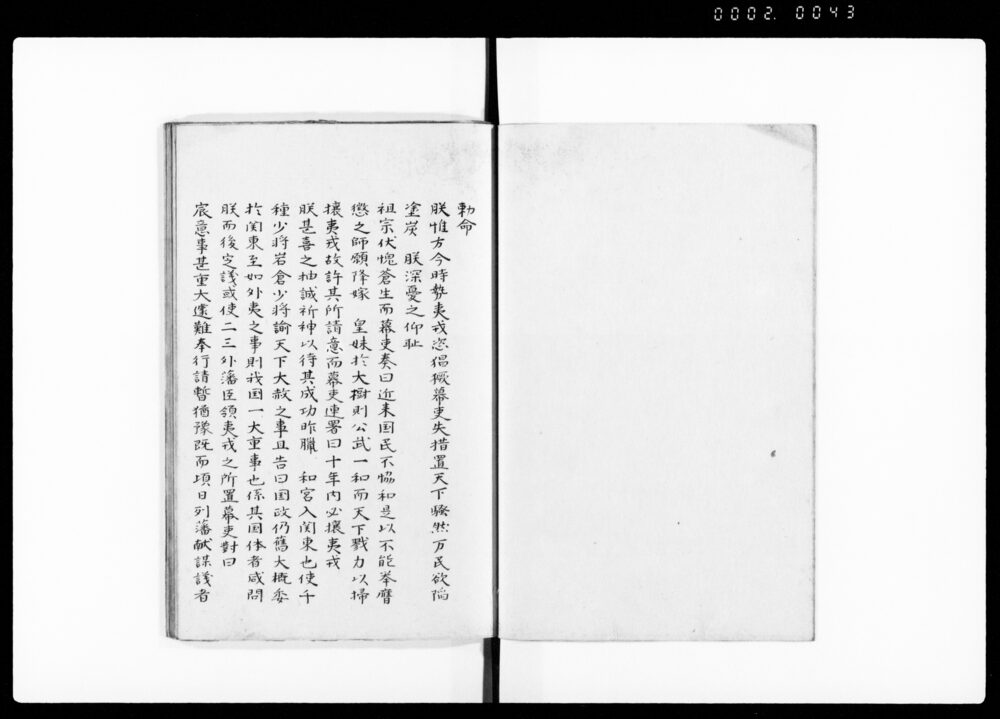 0002.0043
勅命
朕惟方今時勢夷戎恣猖獗幕吏失措置天下騒然万民欲陥
塗炭　朕深憂之仰耻
祖宗伏愧蒼生而幕吏奏曰近来国民不協和是以不能挙膺
懲之師願降嫁　皇妹於大樹則公武一和而天下戮力以掃
攘夷戎故許其所請意而幕吏連署曰十年内必攘夷戎
朕甚喜之抽誠祈神以待其成功昨臘　和宮入関東也使千
種少将岩倉少将諭天下大赦之事且告曰国政仍舊大概委
於関東至如外夷之事則我国一大重事也係其国体者咸問
朕而後定議或使二三外藩臣領夷戎之所置幕吏對曰
宸意事甚重大遽難奉行請暫猶豫既而頃日列藩献謀議者